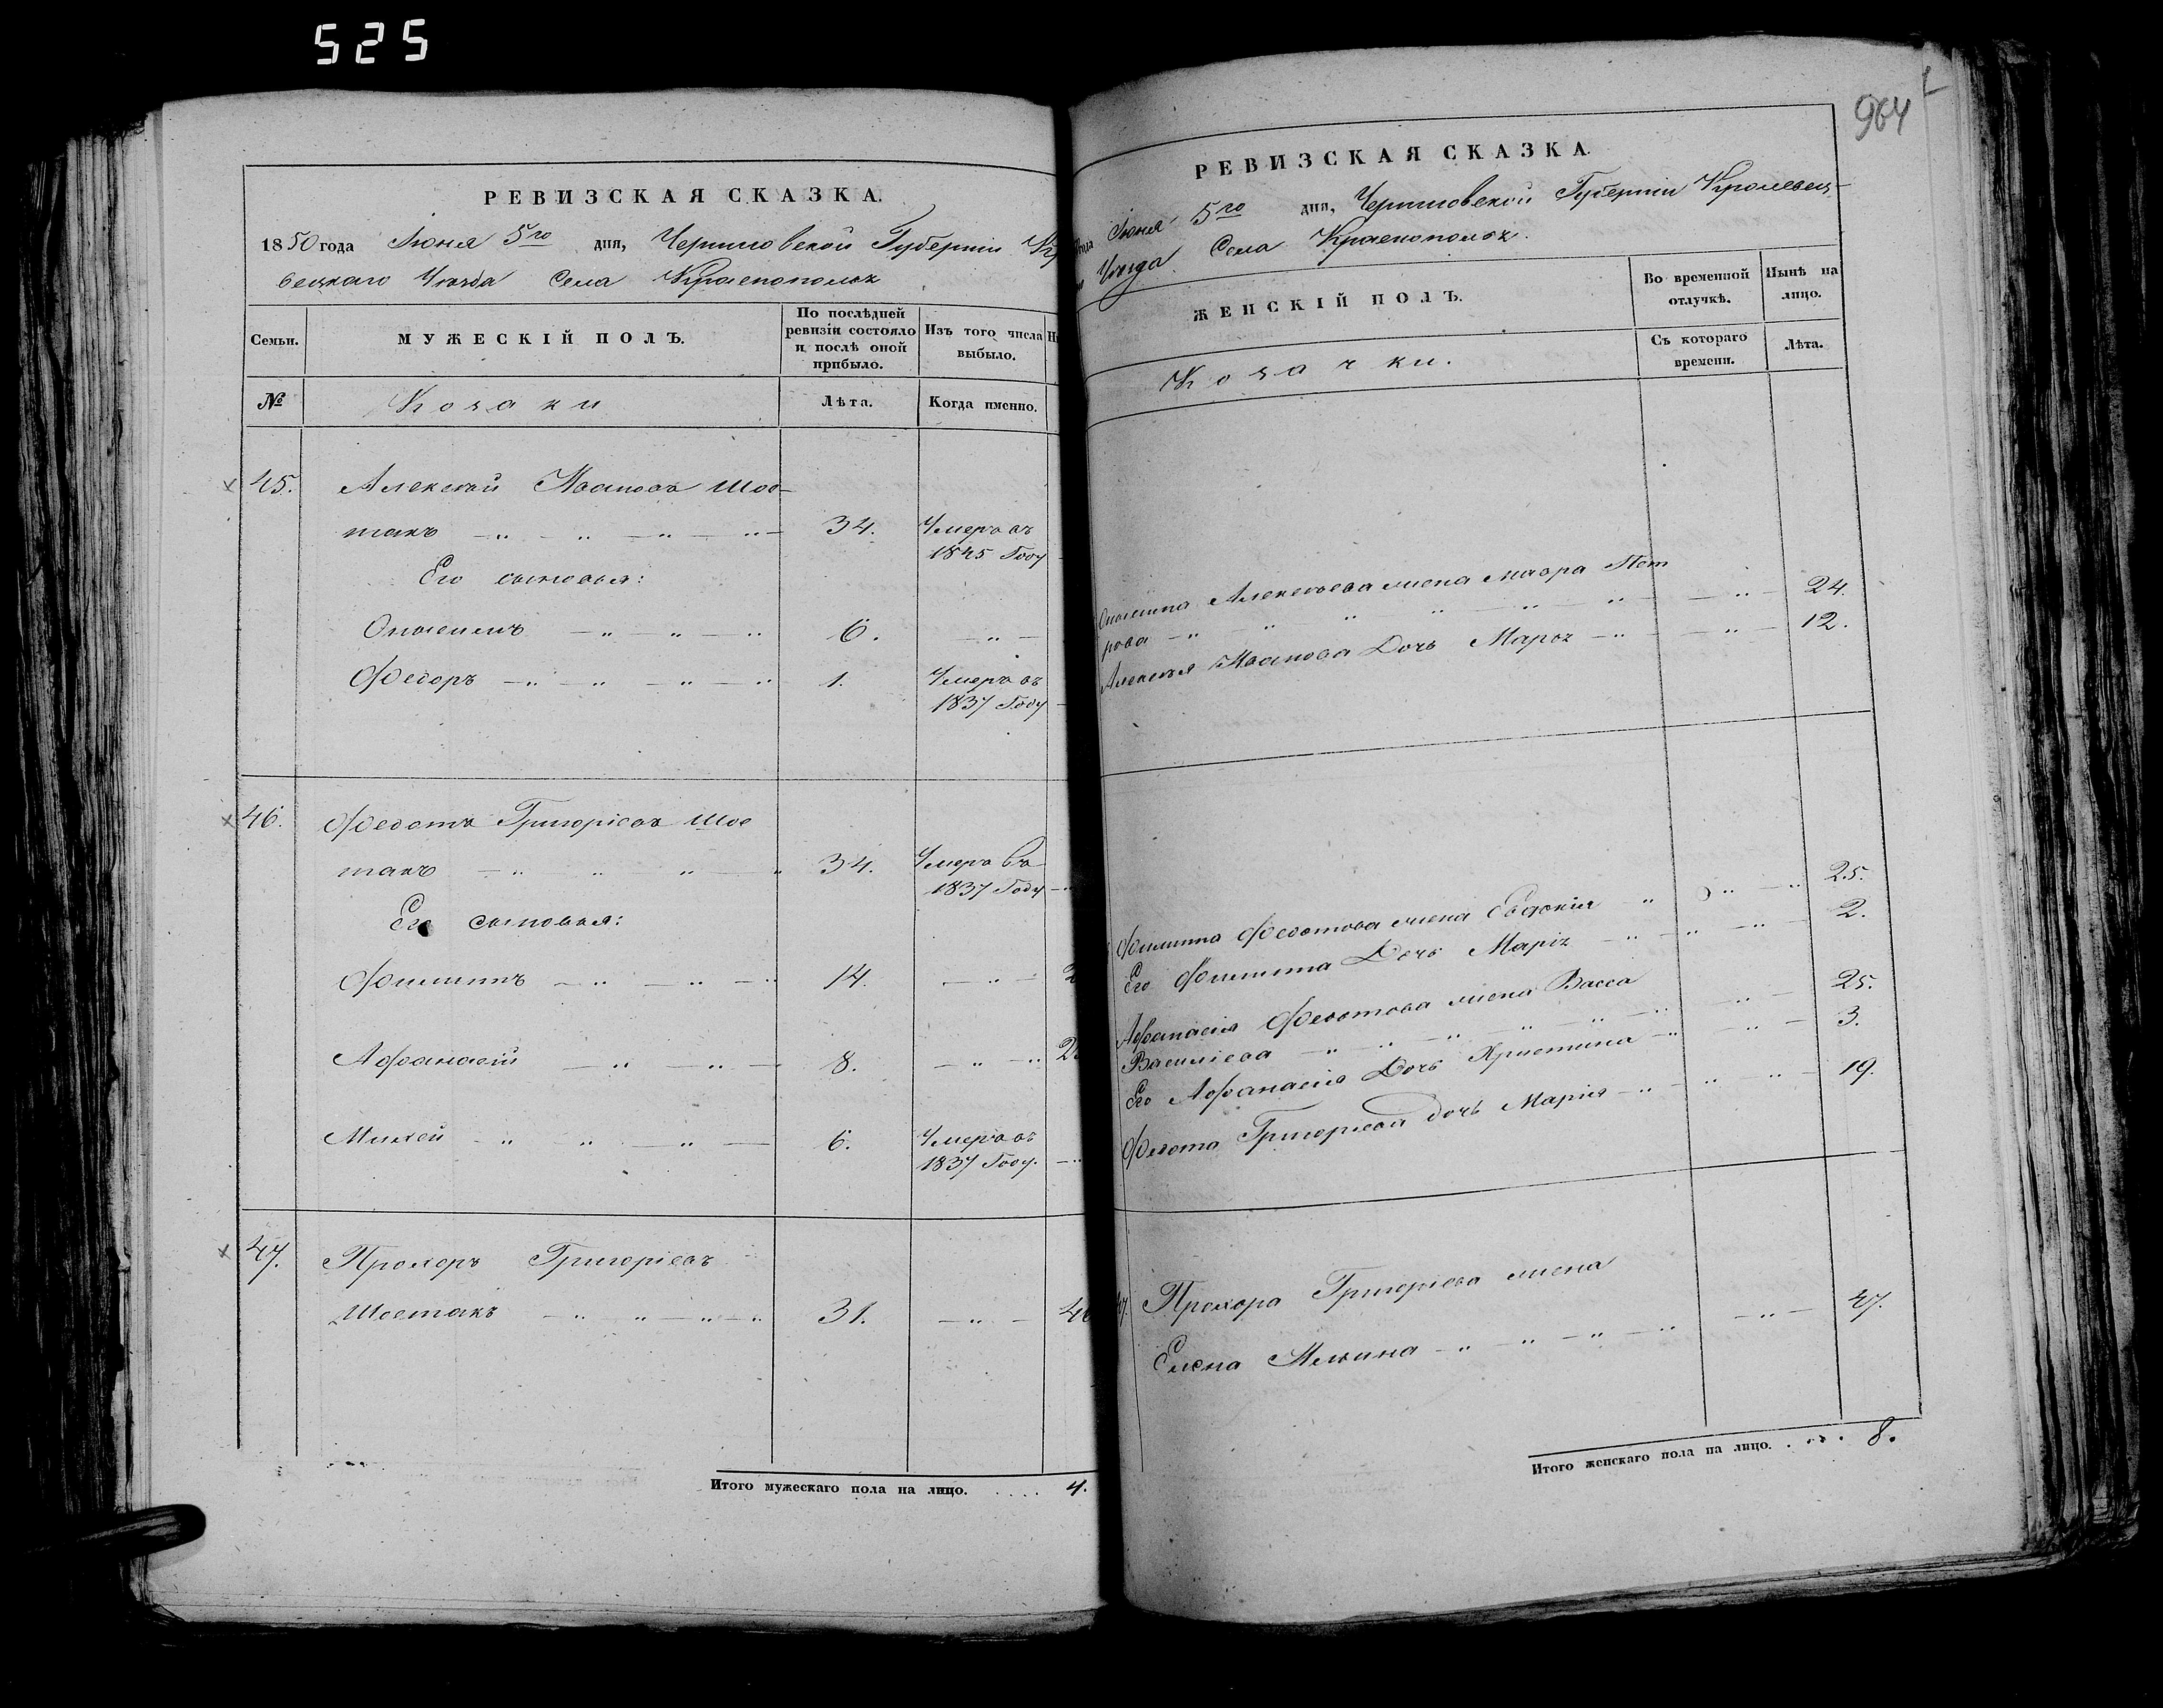 525
964
РЕВИЗСКАЯ СКАЗКА.
1850 года Іюня 5го дня, Черниговской Губерніи Кр
вецкаго Уѣзда Села Краснополья
Семьи. МУЖЕСКІЙ ПОЛЪ. По послѣдней ревизіи состояло и послѣ оной прибыло. Изъ того числа выбыло.
№ Козаки Лѣта. Когда именно.
45. Алексѣй Ивановъ Шос-
такъ 34. Умеръ въ
1845 Году
Его сыновья:
6.
Федоръ 1. Умеръ въ
1837 Году
46. Федотъ Григоріевъ Шос
такъ 34. Умеръ въ
1837 Году
Его сыновья:
Филиппъ 14.
Афанасій 8.
Михей 6. Умеръ въ
1837 Году.
47. Прохоръ Григоріевъ
Шостакъ 31.
Итого мужескаго пола на лицо. 4.
РЕВИЗСКАЯ СКАЗКА.
года Іюня 5го дня, Черниговской Губерніи Кролевец-
Уѣзда Села Краснополья.
ЖЕНСКІЙ ПОЛЪ. Во временной отлучкѣ. Нынѣ на лицо.
Козачки. Съ котораго времени. Лѣта.
Алексѣева жена Мавра Пет
рова 24.
Алексѣя Иванова Дочь Марья 12.
Филиппа Федотова жена Евдокія 25.
Его Филиппа Дочь Марія 2.
Афанасія Федотова жена Васса
Василіева 25.
Его Афанасія Дочь Христина 3.
Федота Григоріева дочь Марія 19.
47. Прохора Григоріева жена
Елена 47.
Итого женскаго пола на лицо. 8.